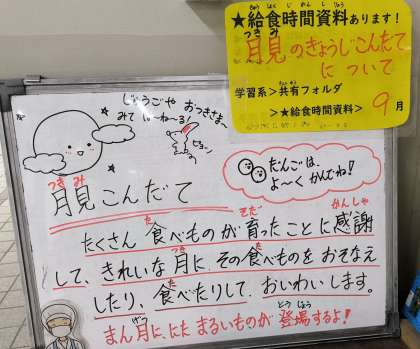 ★給食時間資料あります！
月見のぎょうじこんだて
について
学習系＞共有フォルダ
＞★給食時間資料＞ 9月
じゅうごや おつきさま、
みては〜ね〜る！
ピョン
だんごは、
よ〜くかんでね！
月見こんだて
たくさん食べものが育ったことに感謝
して、きれいな月に、その食べものをおそなえ
したり、食べたりしておいわいします。
まん月に、にたまるいものが登場するよ！